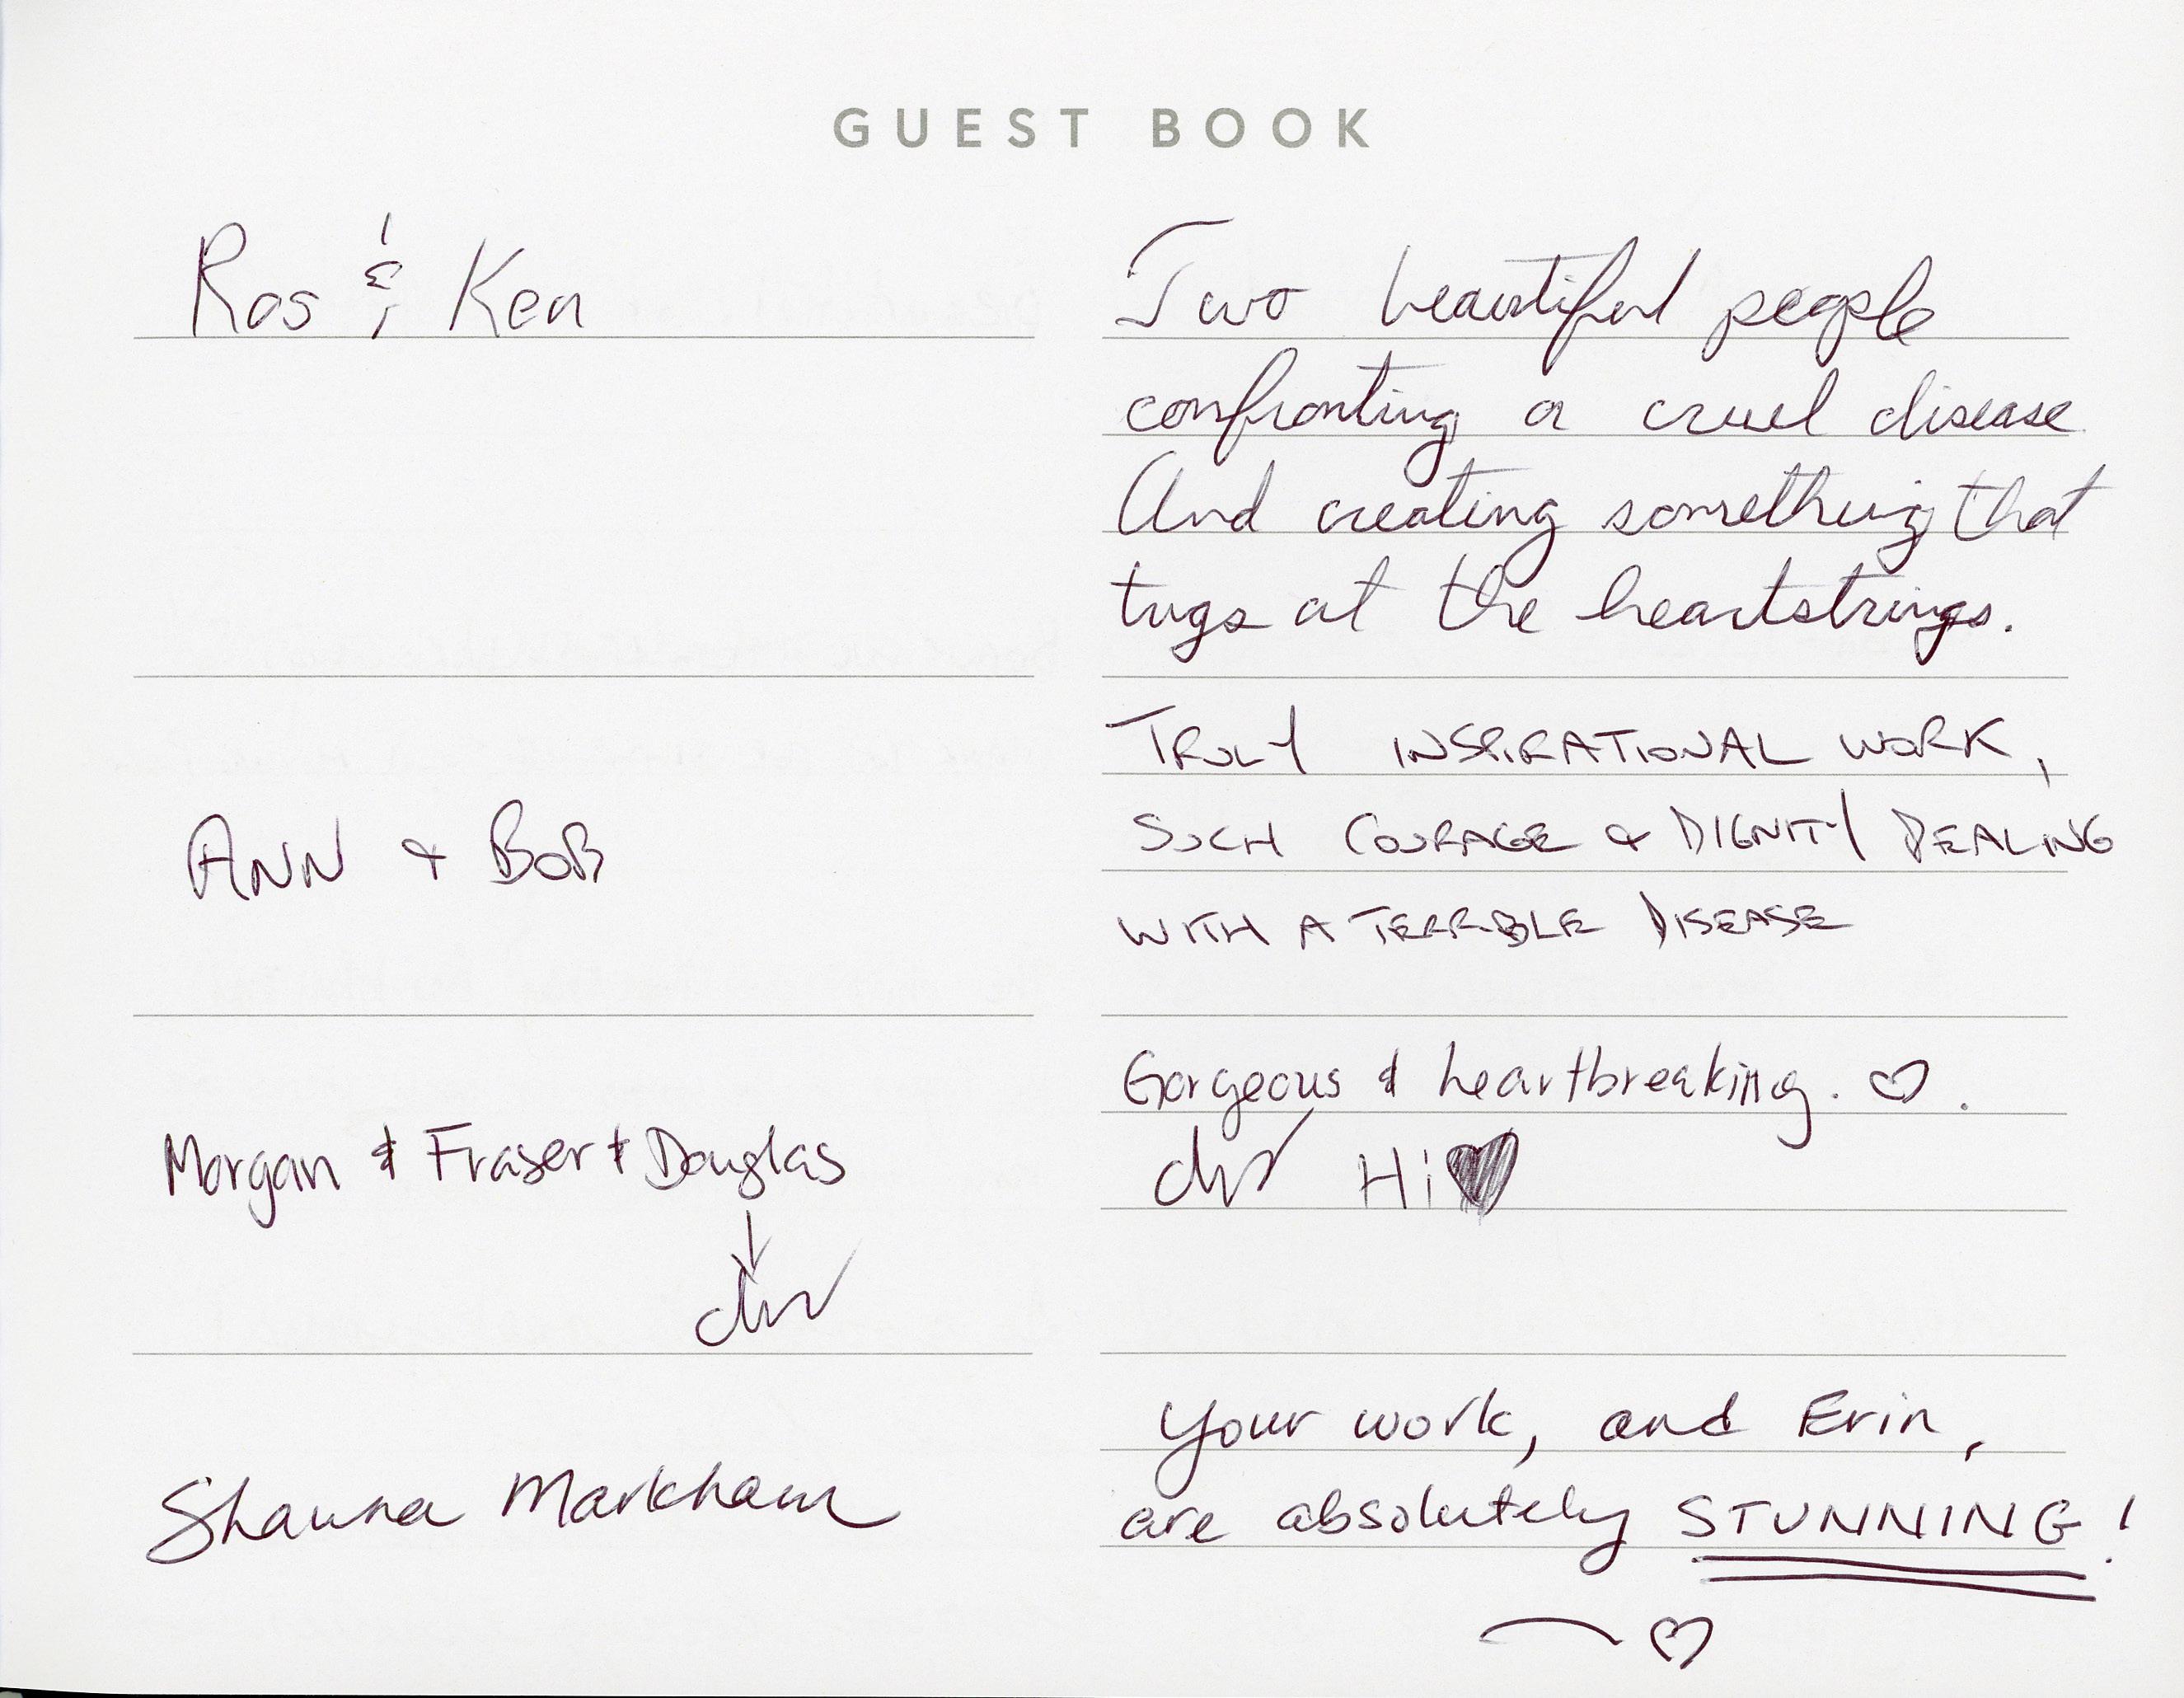 GUEST BOOK
Ros & Ken
Two beautiful people
confronting a cruel disease
And creating something that
tugs at the heartstrings.
ANN & BOB
TRULY INSPIRATIONAL WORK,
SUCH COURAGE & DIGNITY DEALING
WITH A TERRIBLE DISEASE
Morgan & Fraser & Douglas
Gorgeous & heartbreaking. ♡.
Hi ♥
Shauna Markham
Your work, and Erin,
are absolutely STUNNING!
♡